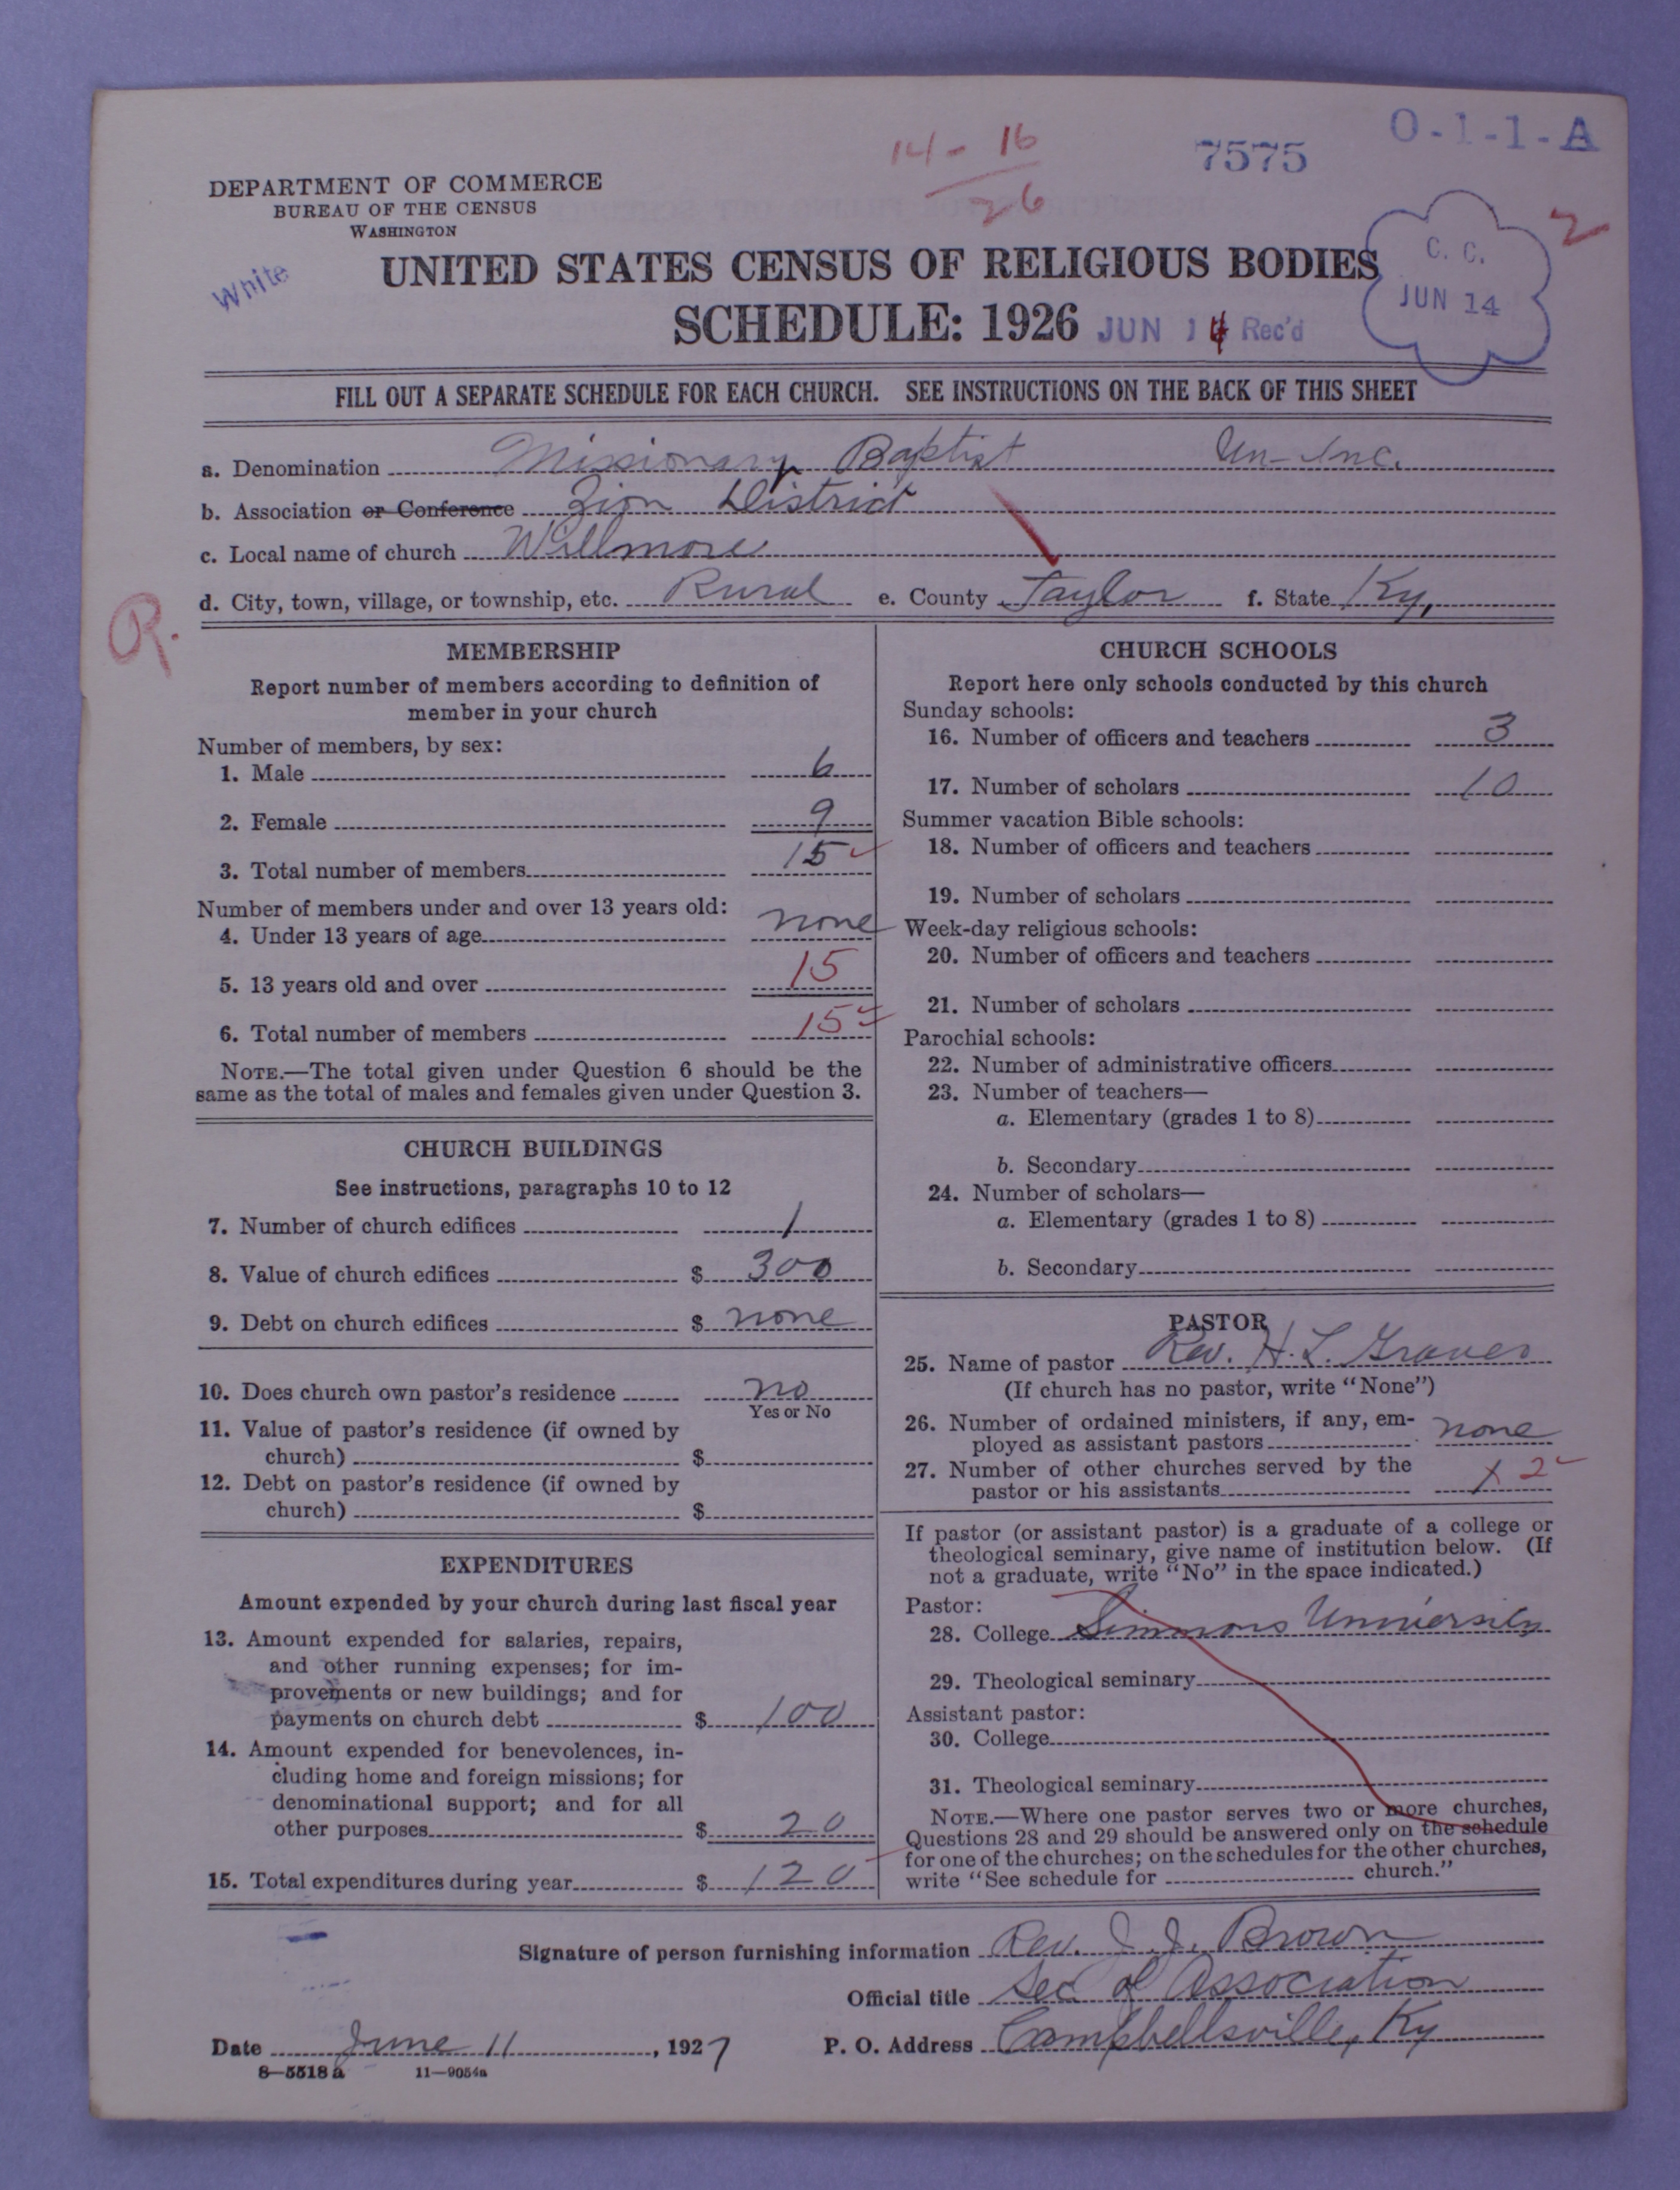 O-1-1-A
14 - 16
26
7575
2
DEPARTMENT OF COMMERCE
BUREAU OF THE CENSUS
WASHINGTON
White
UNITED STATES CENSUS OF RELIGIOUS BODIES
C. C.
JUN 14
SCHEDULE: 1926 JUN 14 Rec'd
FILL OUT A SEPARATE SCHEDULE FOR EACH CHURCH. SEE INSTRUCTIONS ON THE BACK OF THIS SHEET
a. Denomination Missionary Baptist Un-Inc.
b. Association or Conference Zion District
c. Local name of church Willmore
d. City, town, village, or township, etc. Rural e. County Taylor f. State Ky,
R.
MEMBERSHIP
Report number of members according to definition of
member in your church
Number of members, by sex:
1. Male 6
2. Female 9
3. Total number of members 15
Number of members under and over 13 years old:
4. Under 13 years of age none
5. 13 years old and over 15
6. Total number of members 15
NOTE.—The total given under Question 6 should be the
same as the total of males and females given under Question 3.
CHURCH BUILDINGS
See instructions, paragraphs 10 to 12
7. Number of church edifices 1
8. Value of church edifices $ 300
9. Debt on church edifices $ none
10. Does church own pastor's residence no
Yes or No
11. Value of pastor's residence (if owned by
church) $
12. Debt on pastor's residence (if owned by
church) $
EXPENDITURES
Amount expended by your church during last fiscal year
13. Amount expended for salaries, repairs,
and other running expenses; for im-
provements or new buildings; and for
payments on church debt $ 100
14. Amount expended for benevolences, in-
cluding home and foreign missions; for
denominational support; and for all
other purposes $ 20
15. Total expenditures during year $ 120
CHURCH SCHOOLS
Report here only schools conducted by this church
Sunday schools:
16. Number of officers and teachers 3
17. Number of scholars 10
Summer vacation Bible schools:
18. Number of officers and teachers
19. Number of scholars
Week-day religious schools:
20. Number of officers and teachers
21. Number of scholars
Parochial schools:
22. Number of administrative officers
23. Number of teachers—
a. Elementary (grades 1 to 8)
b. Secondary
24. Number of scholars—
a. Elementary (grades 1 to 8)
b. Secondary
PASTOR
25. Name of pastor Rev. H. L. Graves
(If church has no pastor, write "None")
26. Number of ordained ministers, if any, em-
ployed as assistant pastors none
27. Number of other churches served by the
pastor or his assistants 2
If pastor (or assistant pastor) is a graduate of a college or
theological seminary, give name of institution below. (If
not a graduate, write "No" in the space indicated.)
Pastor:
28. College Simmons University
29. Theological seminary
Assistant pastor:
30. College
31. Theological seminary
NOTE.—Where one pastor serves two or more churches,
Questions 28 and 29 should be answered only on the schedule
for one of the churches; on the schedules for the other churches,
write "See schedule for church."
Signature of person furnishing information Rev. J. J. Brown
Official title Sec of Association
Date June 11, 1927 P. O. Address Campbellsville, Ky
8—5518 a 11—9054a